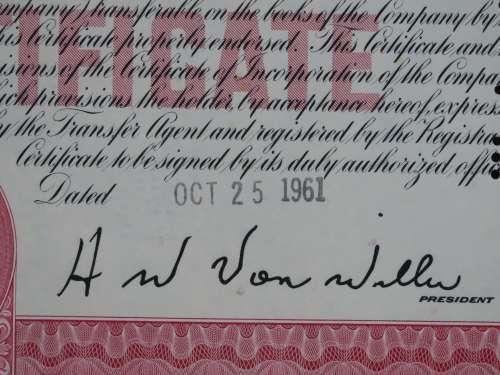 ompany, transferable on the books of the Company by
his Certificate properly endorsed. This Certificate and
isions of the Certificate of Incorporation of the Compa
ich provisions the holder by acceptance hereof, express
y the Transfer Agent and registered by the Registra
Certificate to be signed by its duly authorized offi
TIFICATE
Dated OCT 25 1961
H W Von Willer
PRESIDENT